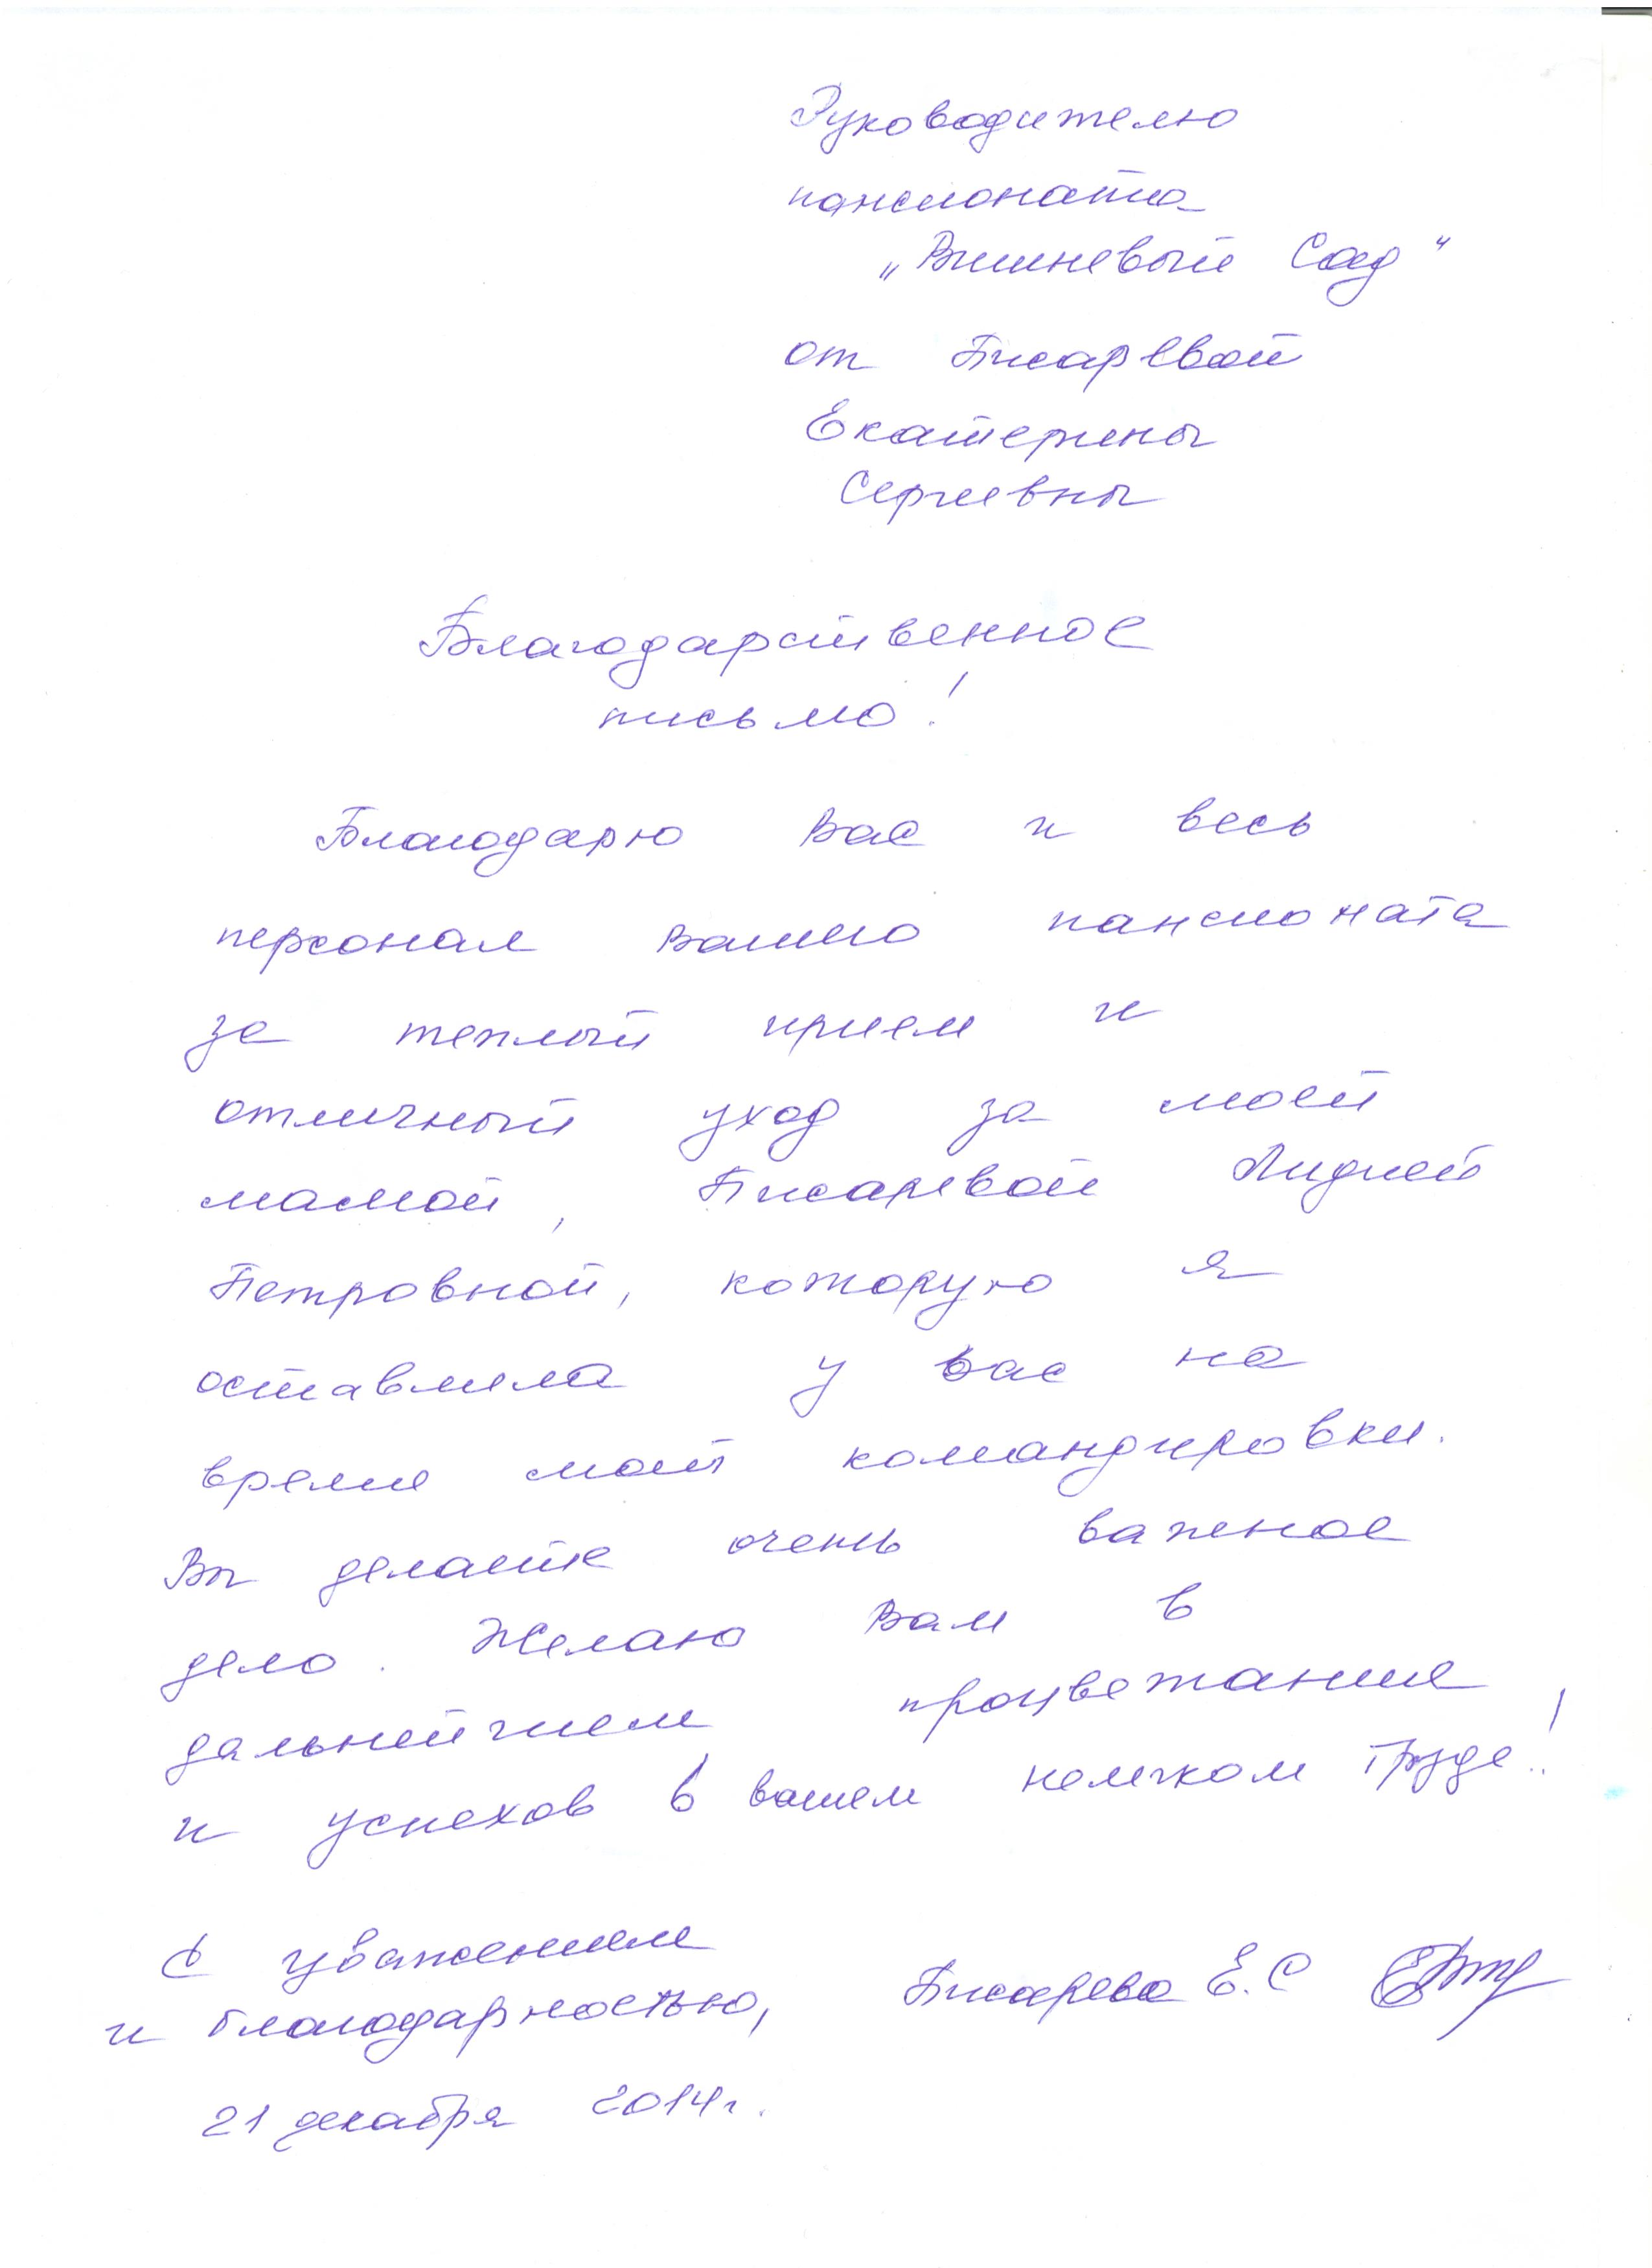 Руководителю
пансионата
„Вишневый Сад"
от Писаревой
Екатерины
Сергеевны
Благодарственное
письмо!
Благодарю Вас и весь
персонал Вашего пансионата
за теплый прием и
отличный уход за моей
мамой, Писаревой Лидией
Петровной, которую я
оставляла у вас на
время моей командировки.
Вы делаете очень важное
дело. Желаю Вам в
дальнейшем процветание
и успехов в вашем нелегком труде!
С уважением
и благодарностью, Писарева Е.С
21 декабря 2014г.